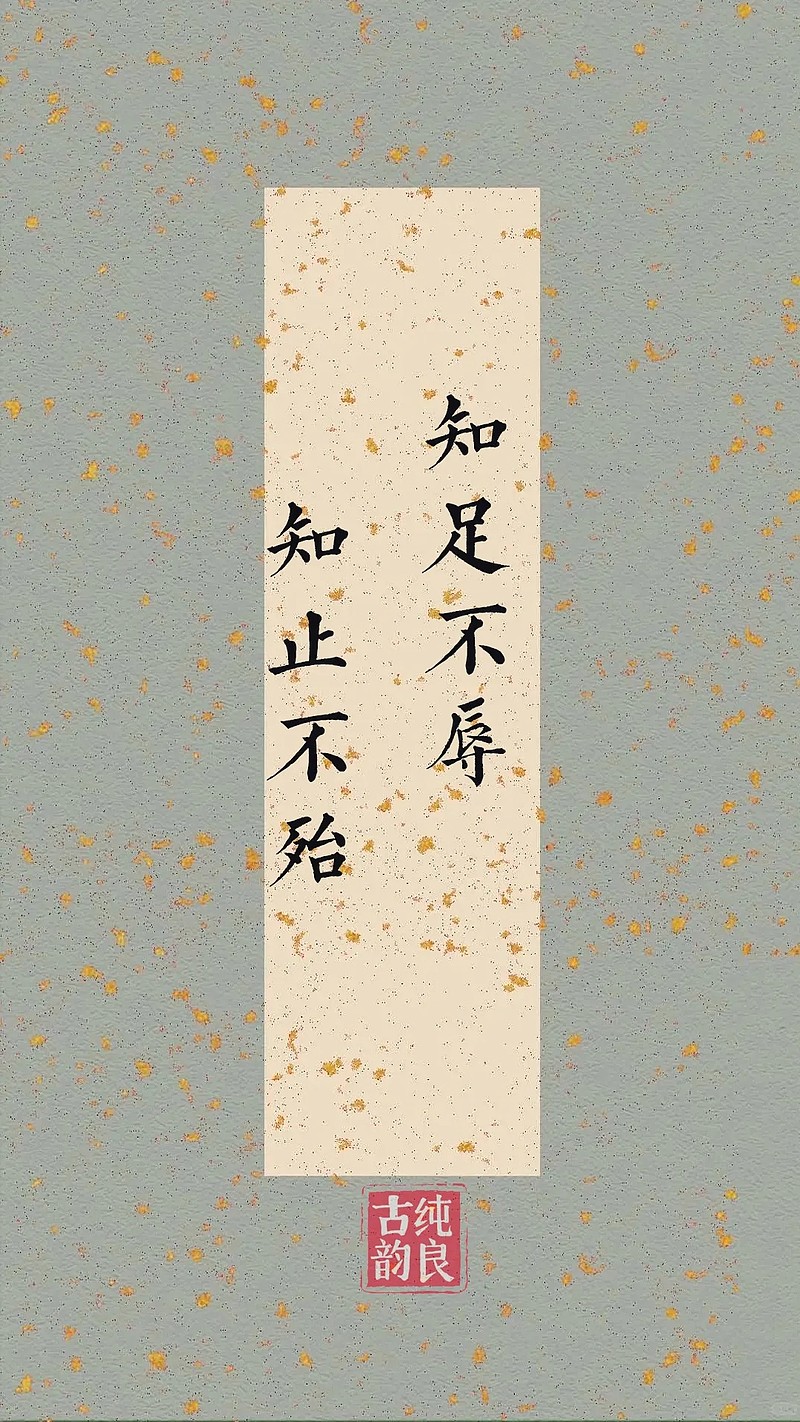 知足不辱
知止不殆
纯良
古韵